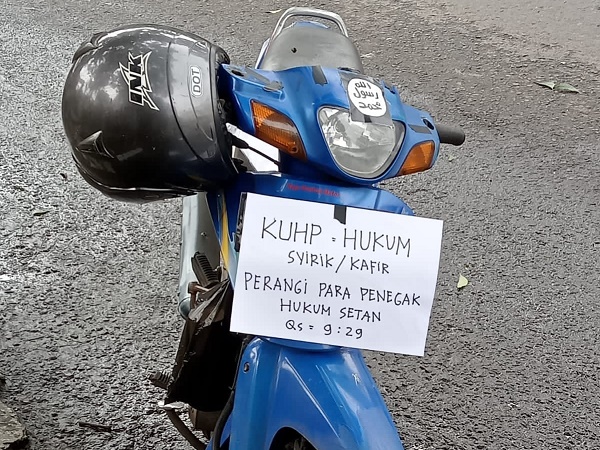 INK
DOT
الله
رسول
محمد
KUHP = HUKUM
SYIRIK/KAFIR
PERANGI PARA PENEGAK
HUKUM SETAN
Qs = 9:29